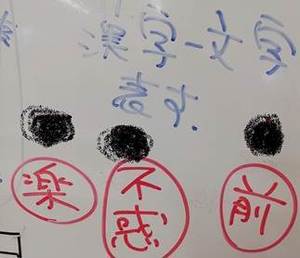 漢字一文字
楽 不惑 前